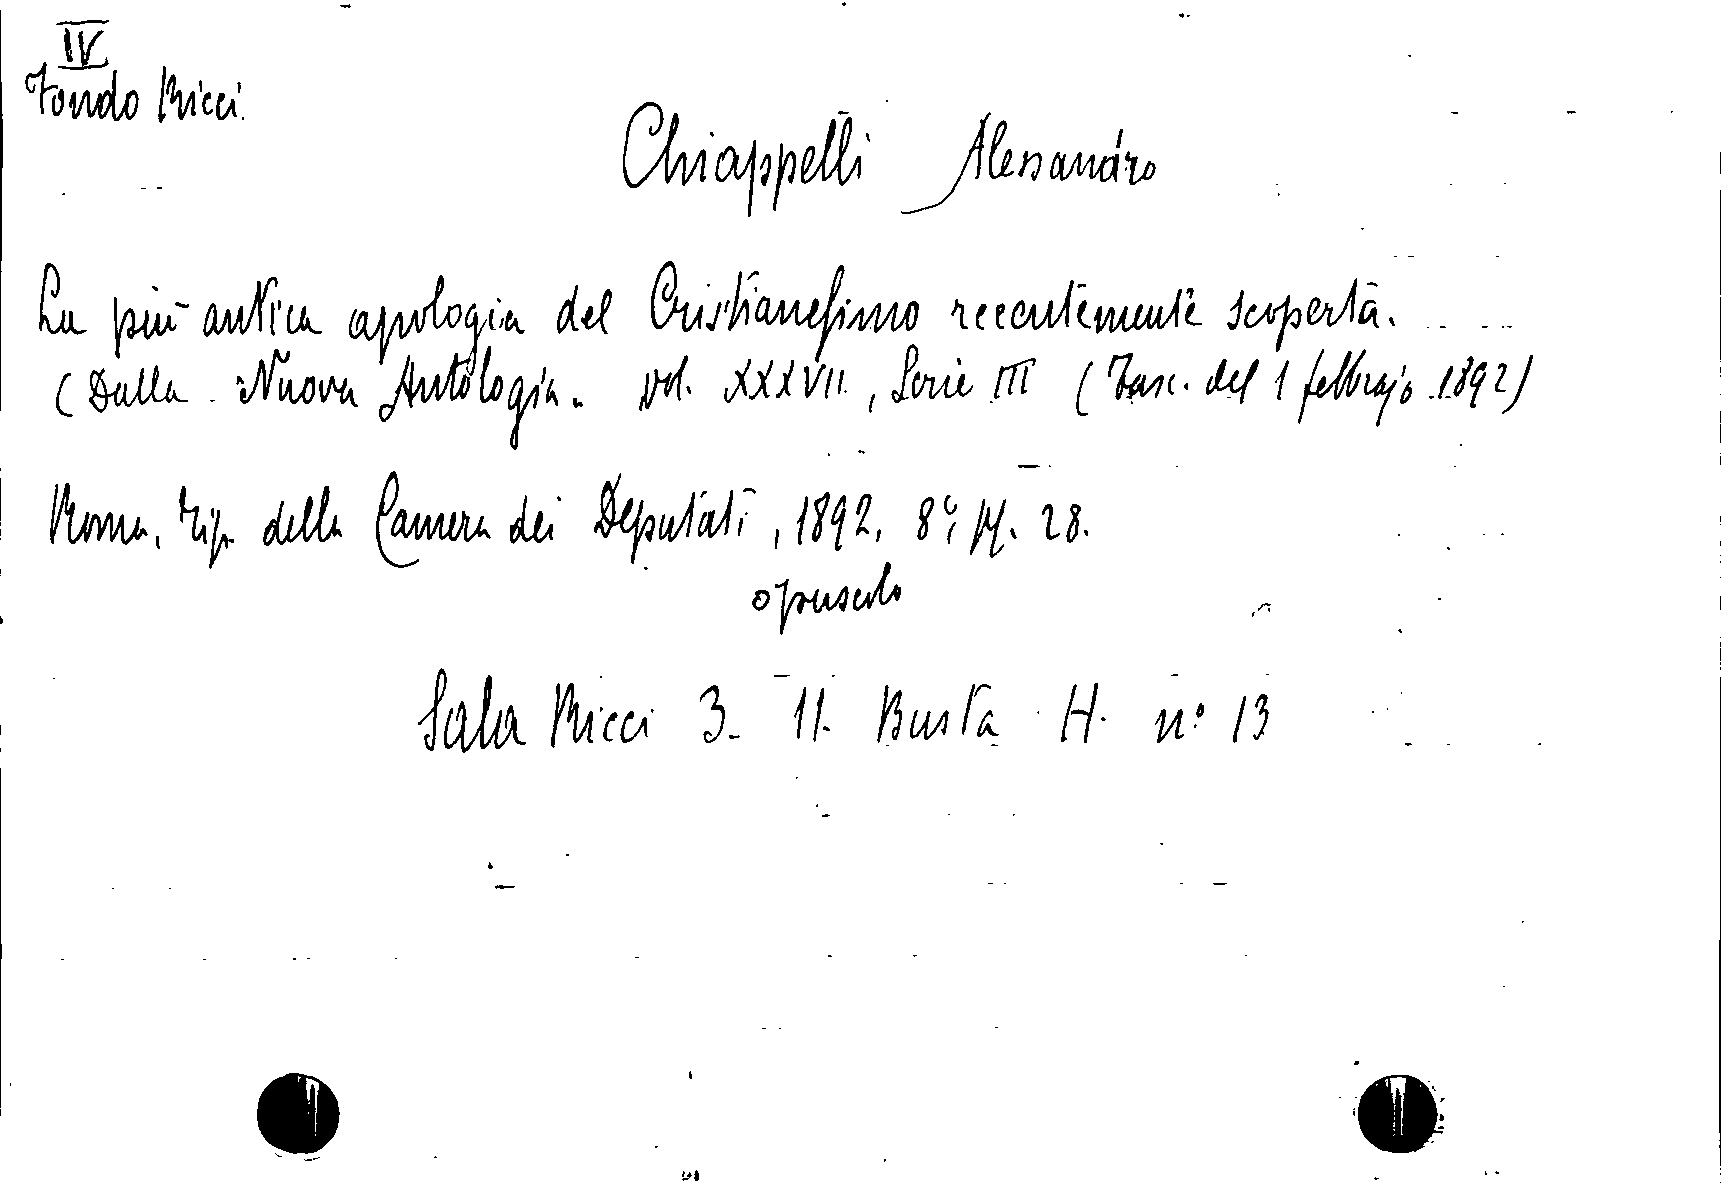 IV
Fondo Ricci
Chiappelli Alessandro
La più antica apologia del Cristianesimo recentemente scoperta.
(Dalla Nuova Antologia. vol. XXXVII, Serie III (Fasc. del 1 febbrajo 1892)
Roma, Tip. della Camera dei Deputati, 1892, 8°, pp. 28.
opuscolo
Sala Ricci 3. 11. Busta H. n° 13